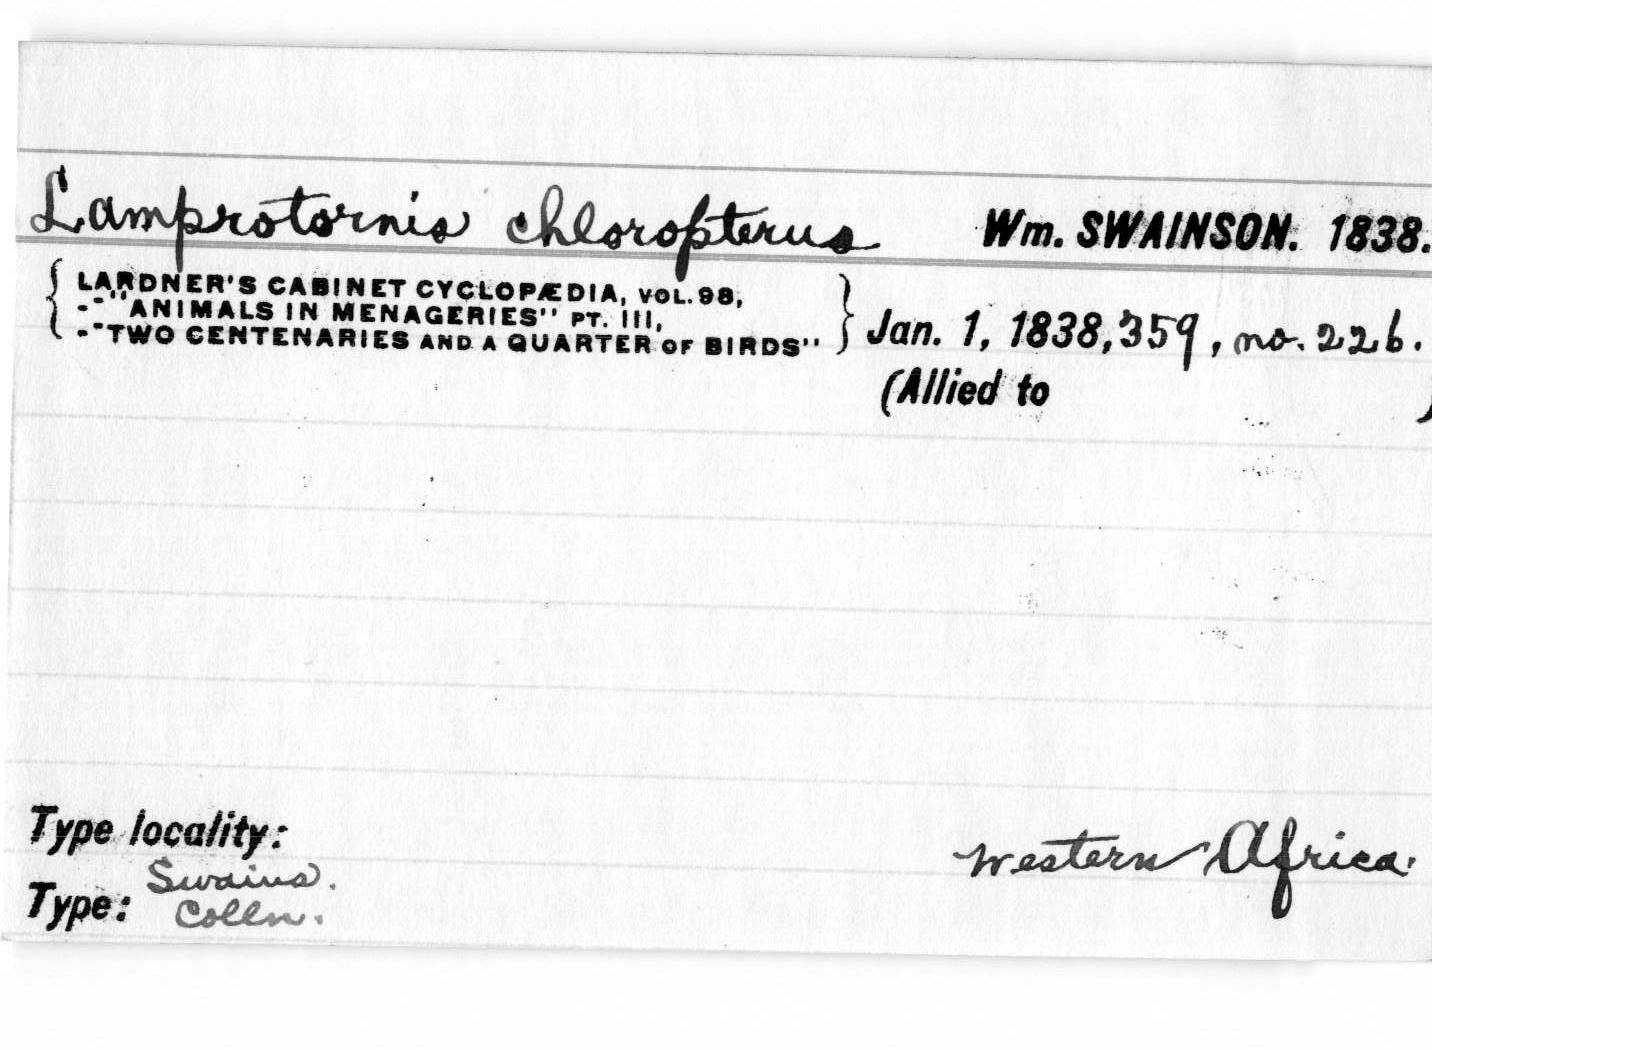 Lamprotornis chloropterus Wm. SWAINSON. 1838.
{ LARDNER'S CABINET CYCLOPÆDIA, VOL. 98,
-"ANIMALS IN MENAGERIES" PT. III,
-"TWO CENTENARIES AND A QUARTER OF BIRDS" } Jan. 1, 1838, 359, no. 226.
(Allied to )
Type locality: western Africa.
Swains.
Type: Colln.